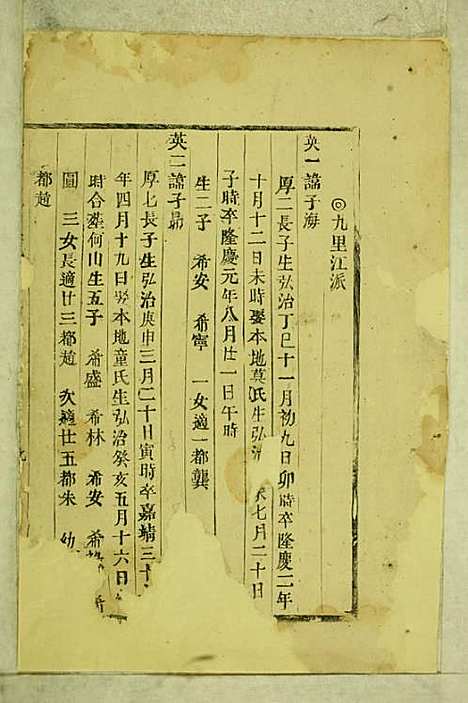 ◎九里江派
英一諱子海
厚二長子生弘治丁巳十一月初九日卯時卒隆慶二年
十月十二日未時娶本地莫氏生弘治 未七月二十日
子時卒隆慶元年八月廿一日午時
生二子 希安 希寧 一女適一都龔
英二諱子昴
厚七長子生弘治庚申三月二十日寅時卒嘉靖三十
年四月十九日娶本地童氏生弘治癸亥五月十六日
時合塟何山生五子 希盛 希林 希安 希
圖 三女長適廿三都趙 次適廿五都朱 幼
都趙
九